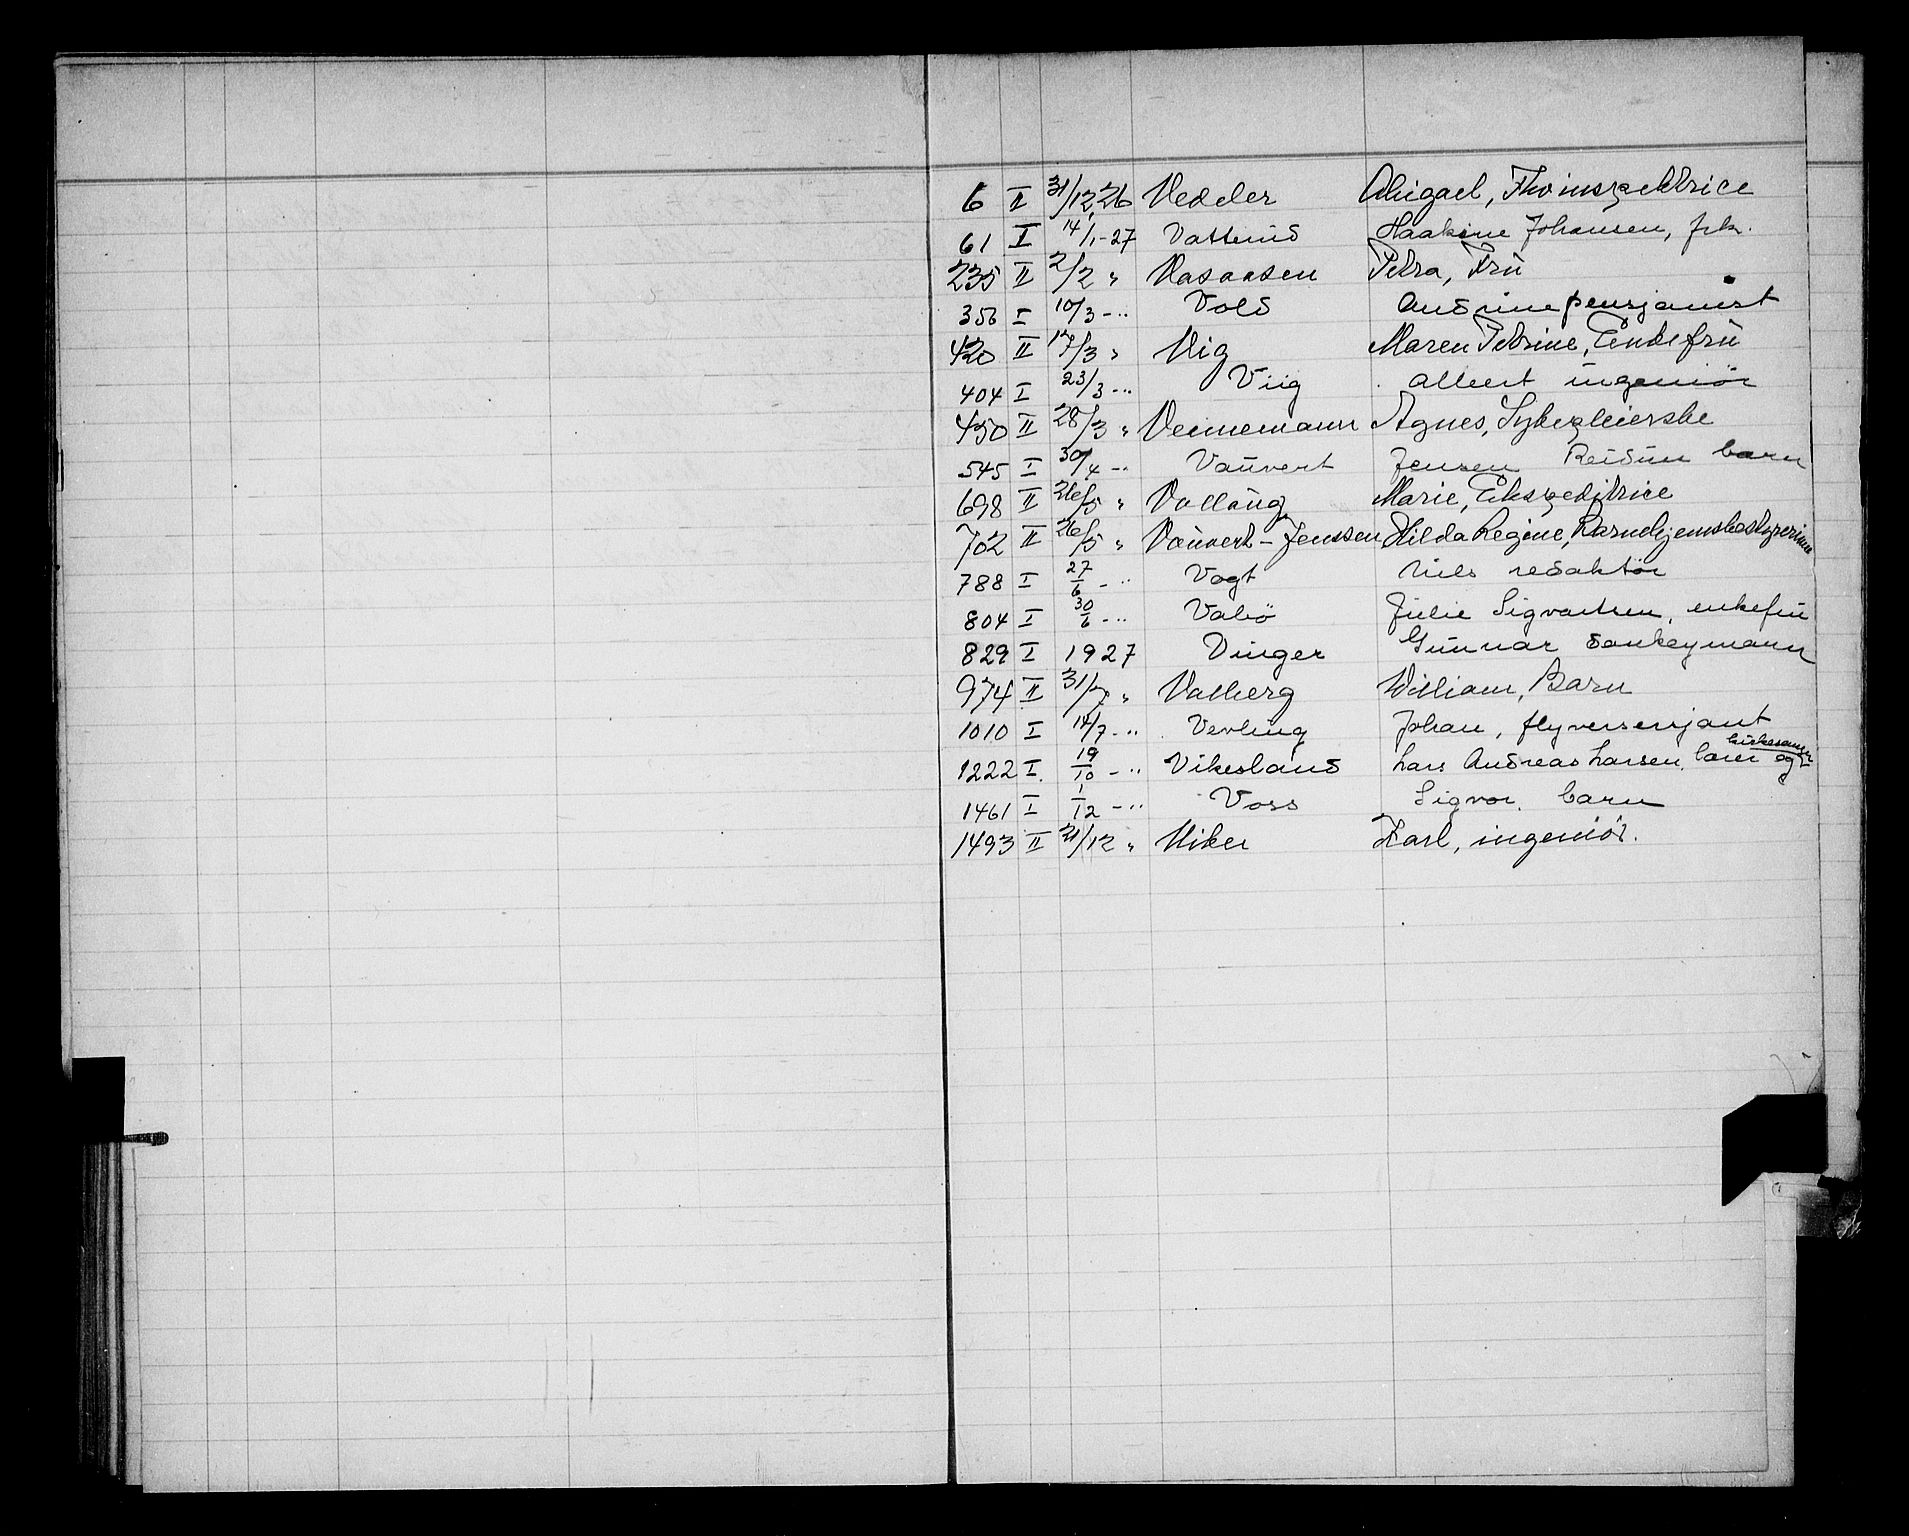 6 II 31/12 26 Vedeler Abigael, Fhv inspektrice
61 I 14/1-27 Vatterud Haakine Johansen, frk.
235 II 2/2 " Vasaasen Petra, Fru
356 I 10/3 - " Vold Andrine pensjonist
420 II 17/3 " Vig Maren Petrine, Enkefru
404 I 23/3 - " Viig Albert ingeniør
450 II 28/3 " Vennemann Agnes, Sykepleierske
545 I 30/4 - " Vauvert Jensen Reidun barn
698 II 26/5 " Vollaug Marie, Ekspeditrice
702 II 26/5 " Vauvert-Jenssen Hilda Regine, Barnehjemsbestyrerinne
788 I 27/6 - " Vogt Nils redaktør
804 I 30/6 - " Valsø Julie Sigvartsen, enkefru
829 I 1927 Vinger Gunnar Dankeymann
974 II 31/7 " Valberg William, Barn
1010 I 14/7 - " Vevling Johan, flyversersjant
1222 I. 19/10 - " Vikesland Lars Andreas Larsen, lærer og kirkesanger
1461 I 1/12 - " Voss Sigvor. barn
1493 II 31/12 " Viker Karl, ingeniør.